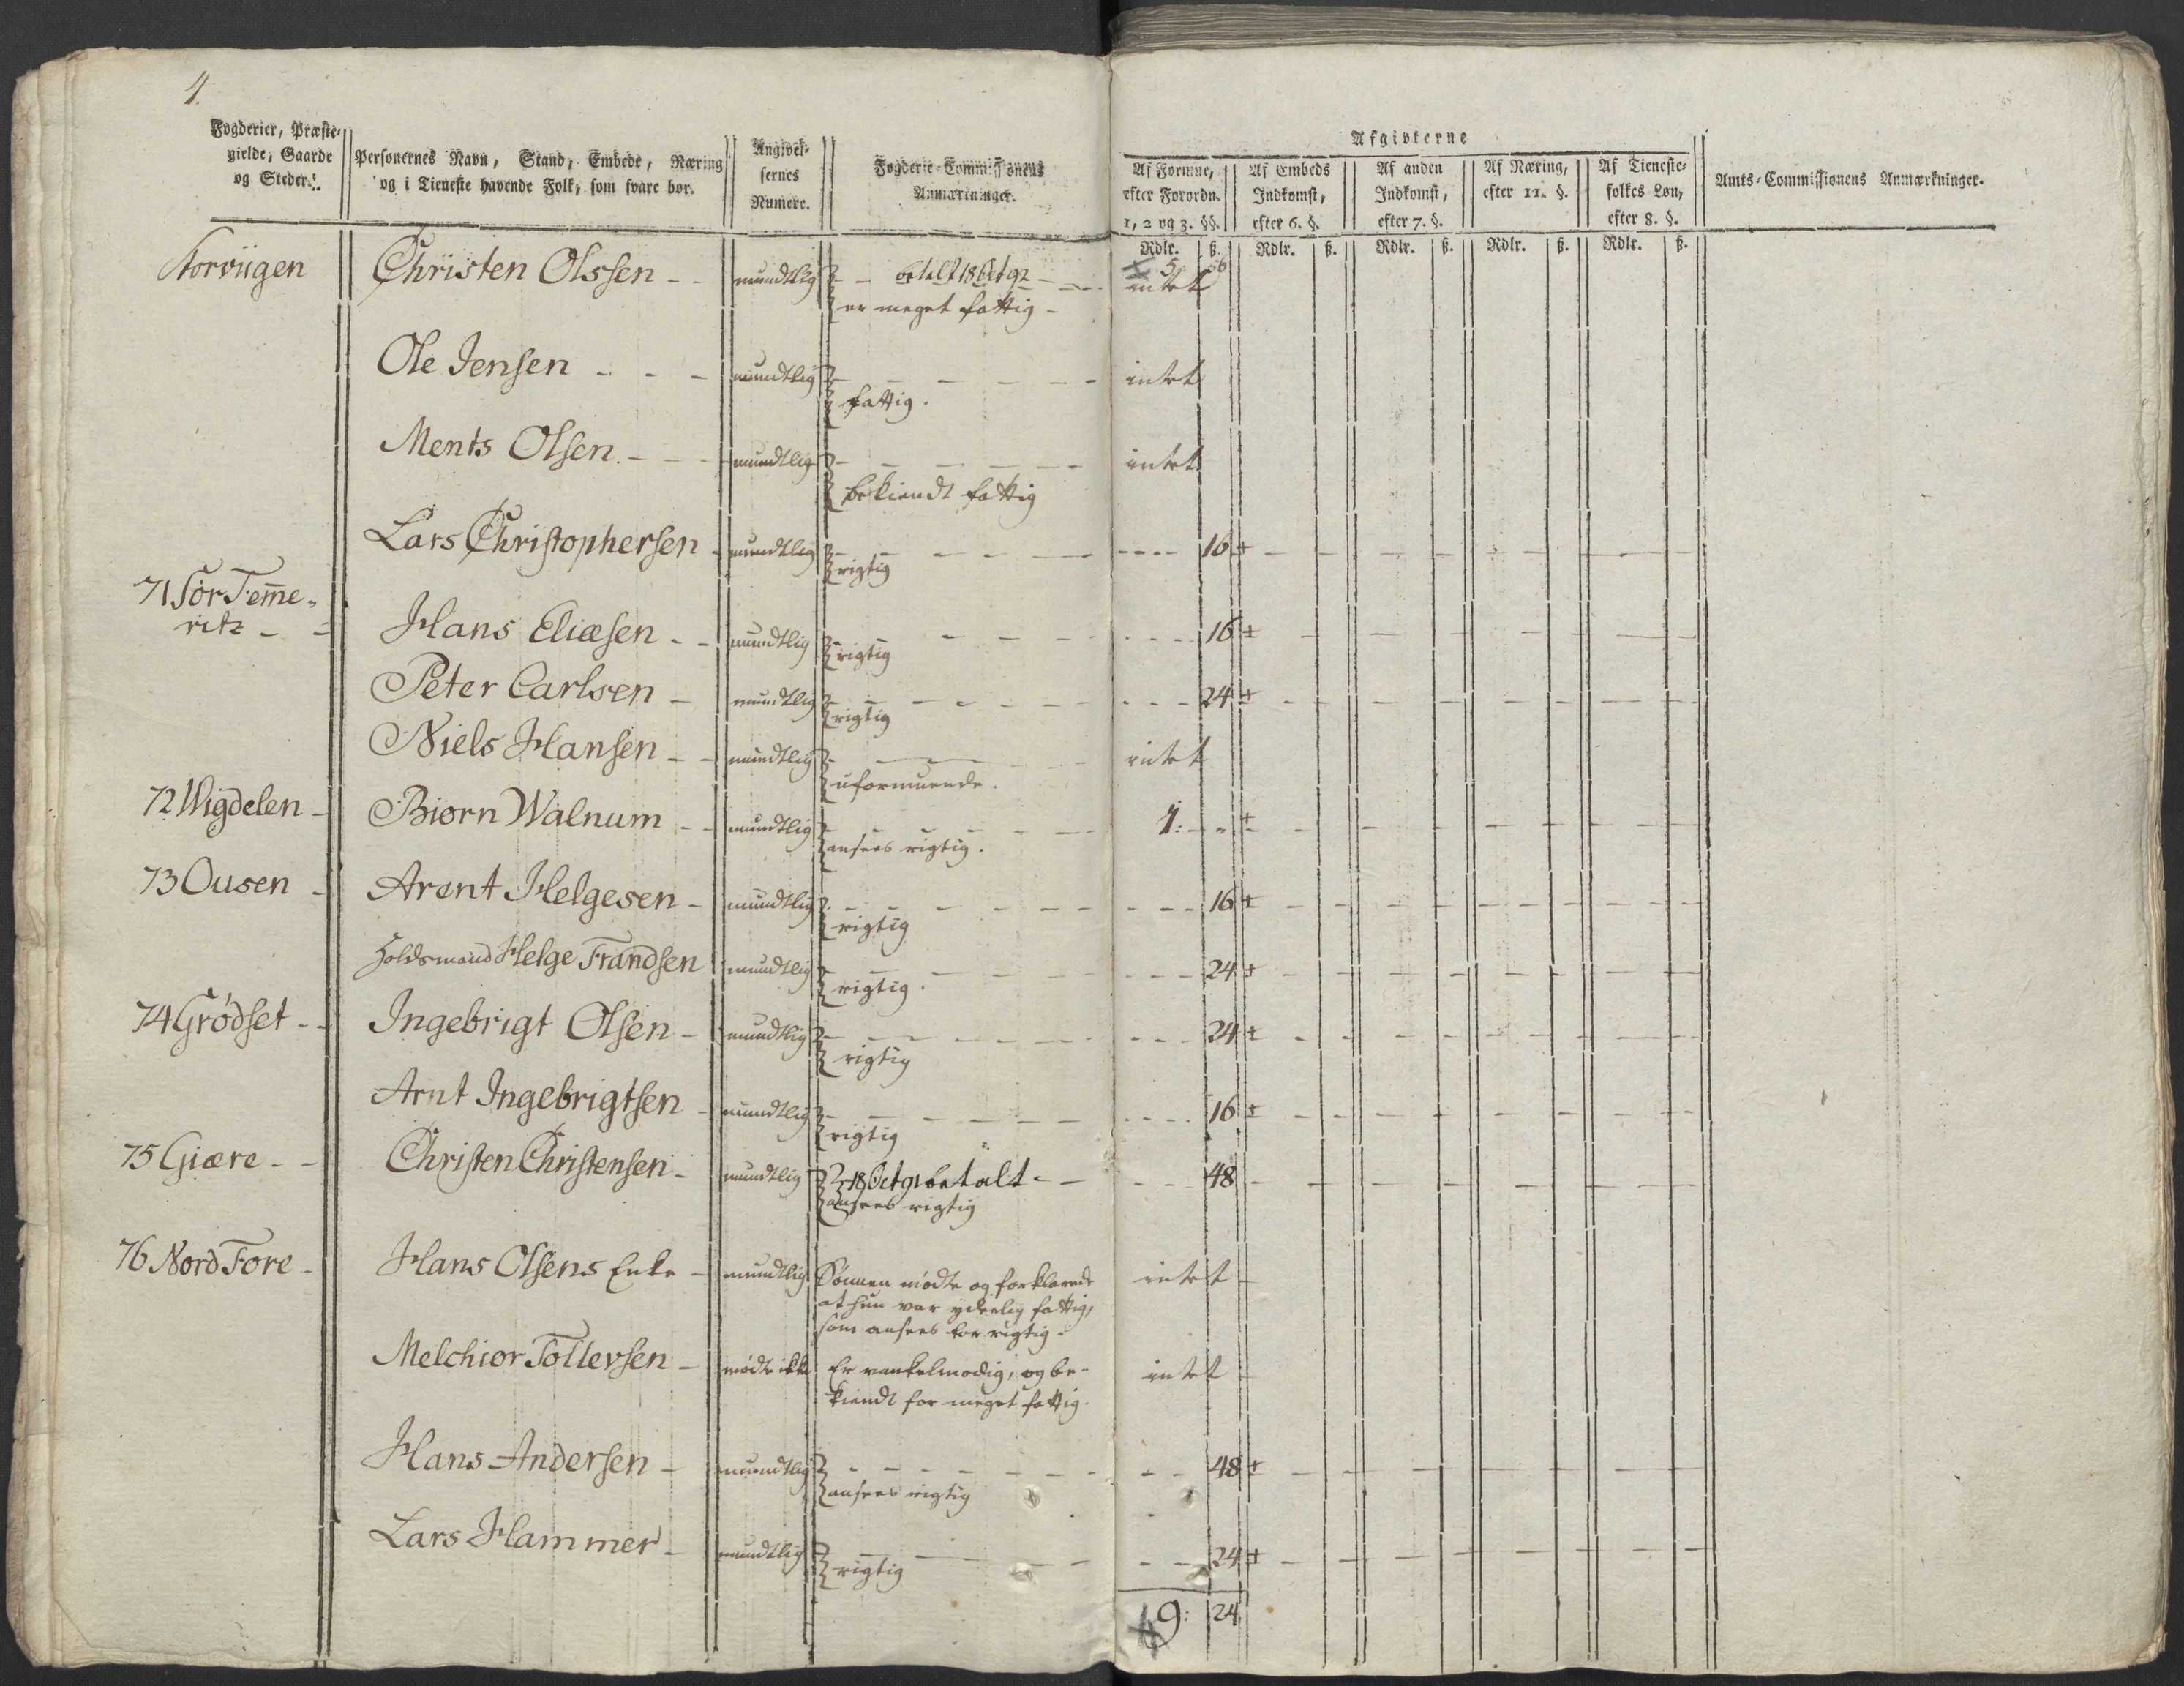 4.
Fogderier, Præste-
gielde, Gaarde
og Steder.
Personernes Navn, Stand, Embede, Næring
og i Tieneste havende Folk, som svare bør.
Angivel-
sernes
Numere.
Fogderie-Commissionens
Anmærkninger.
Afgivterne
Af Formue,
efter Forordn.
1, 2 og 3. §§.
Af Embeds
Indkomst,
efter 6. §.
Af anden
Indkomst,
efter 7. §.
Af Næring,
efter 11. §.
Af Tieneste-
folkes Løn,
efter 8. §.
Amts-Commissionens Anmærkninger.
Rdlr. ß. Rdlr. ß. Rdlr. ß. Rdlr. ß. Rdlr. ß.
Christen Olssen - - mundtlig - - betalt 18 Oct 92 - intet
er meget fattig -
Ole Jensen - - - mundtlig - - - intet
fattig.
Ments Olsen - - - mundtlig - - - intet
bekiendt fattig
Lars Christophersen - mundtlig - - - 16
rigtig
71 Sør Tem̅e-
ritz - -
Hans Eliæsen - - mundtlig - - - 16
rigtig
Peter Carlsen - mundtlig - - - 24
rigtig
Niels Hansen - - mundtlig - - - intet
uformuende.
72 Wigdelen - Biørn Walnum - - mundtlig - - - 1: - "
ansees rigtig.
73 Ousen - Arent Helgesen - mundtlig - - - 16
rigtig
Helge Frandsen mundtlig - - - 24
rigtig.
74 Grødset - - Ingebrigt Olsen - mundtlig - - - 24
rigtig
Arnt Ingebrigtsen - mundtlig - - - 16
rigtig
75 Giære - - Christen Christensen - mundtlig 18 Oct 91 betalt - - 48
ansees rigtig
76 Nord Fore - Hans Olsens Enke - mundtlig Sønnen mødte og forklarede intet
at hun var yderlig fattig,
som ansees for rigtig.
Melchior Tollevsen - mødte ikke Er vankelmodig, og be- intet
kiendt for meget fattig.
Hans Andersen - mundtlig - - - 48
ansees rigtig
Lars Hammer - mundtlig - - - 24
rigtig
9: 24